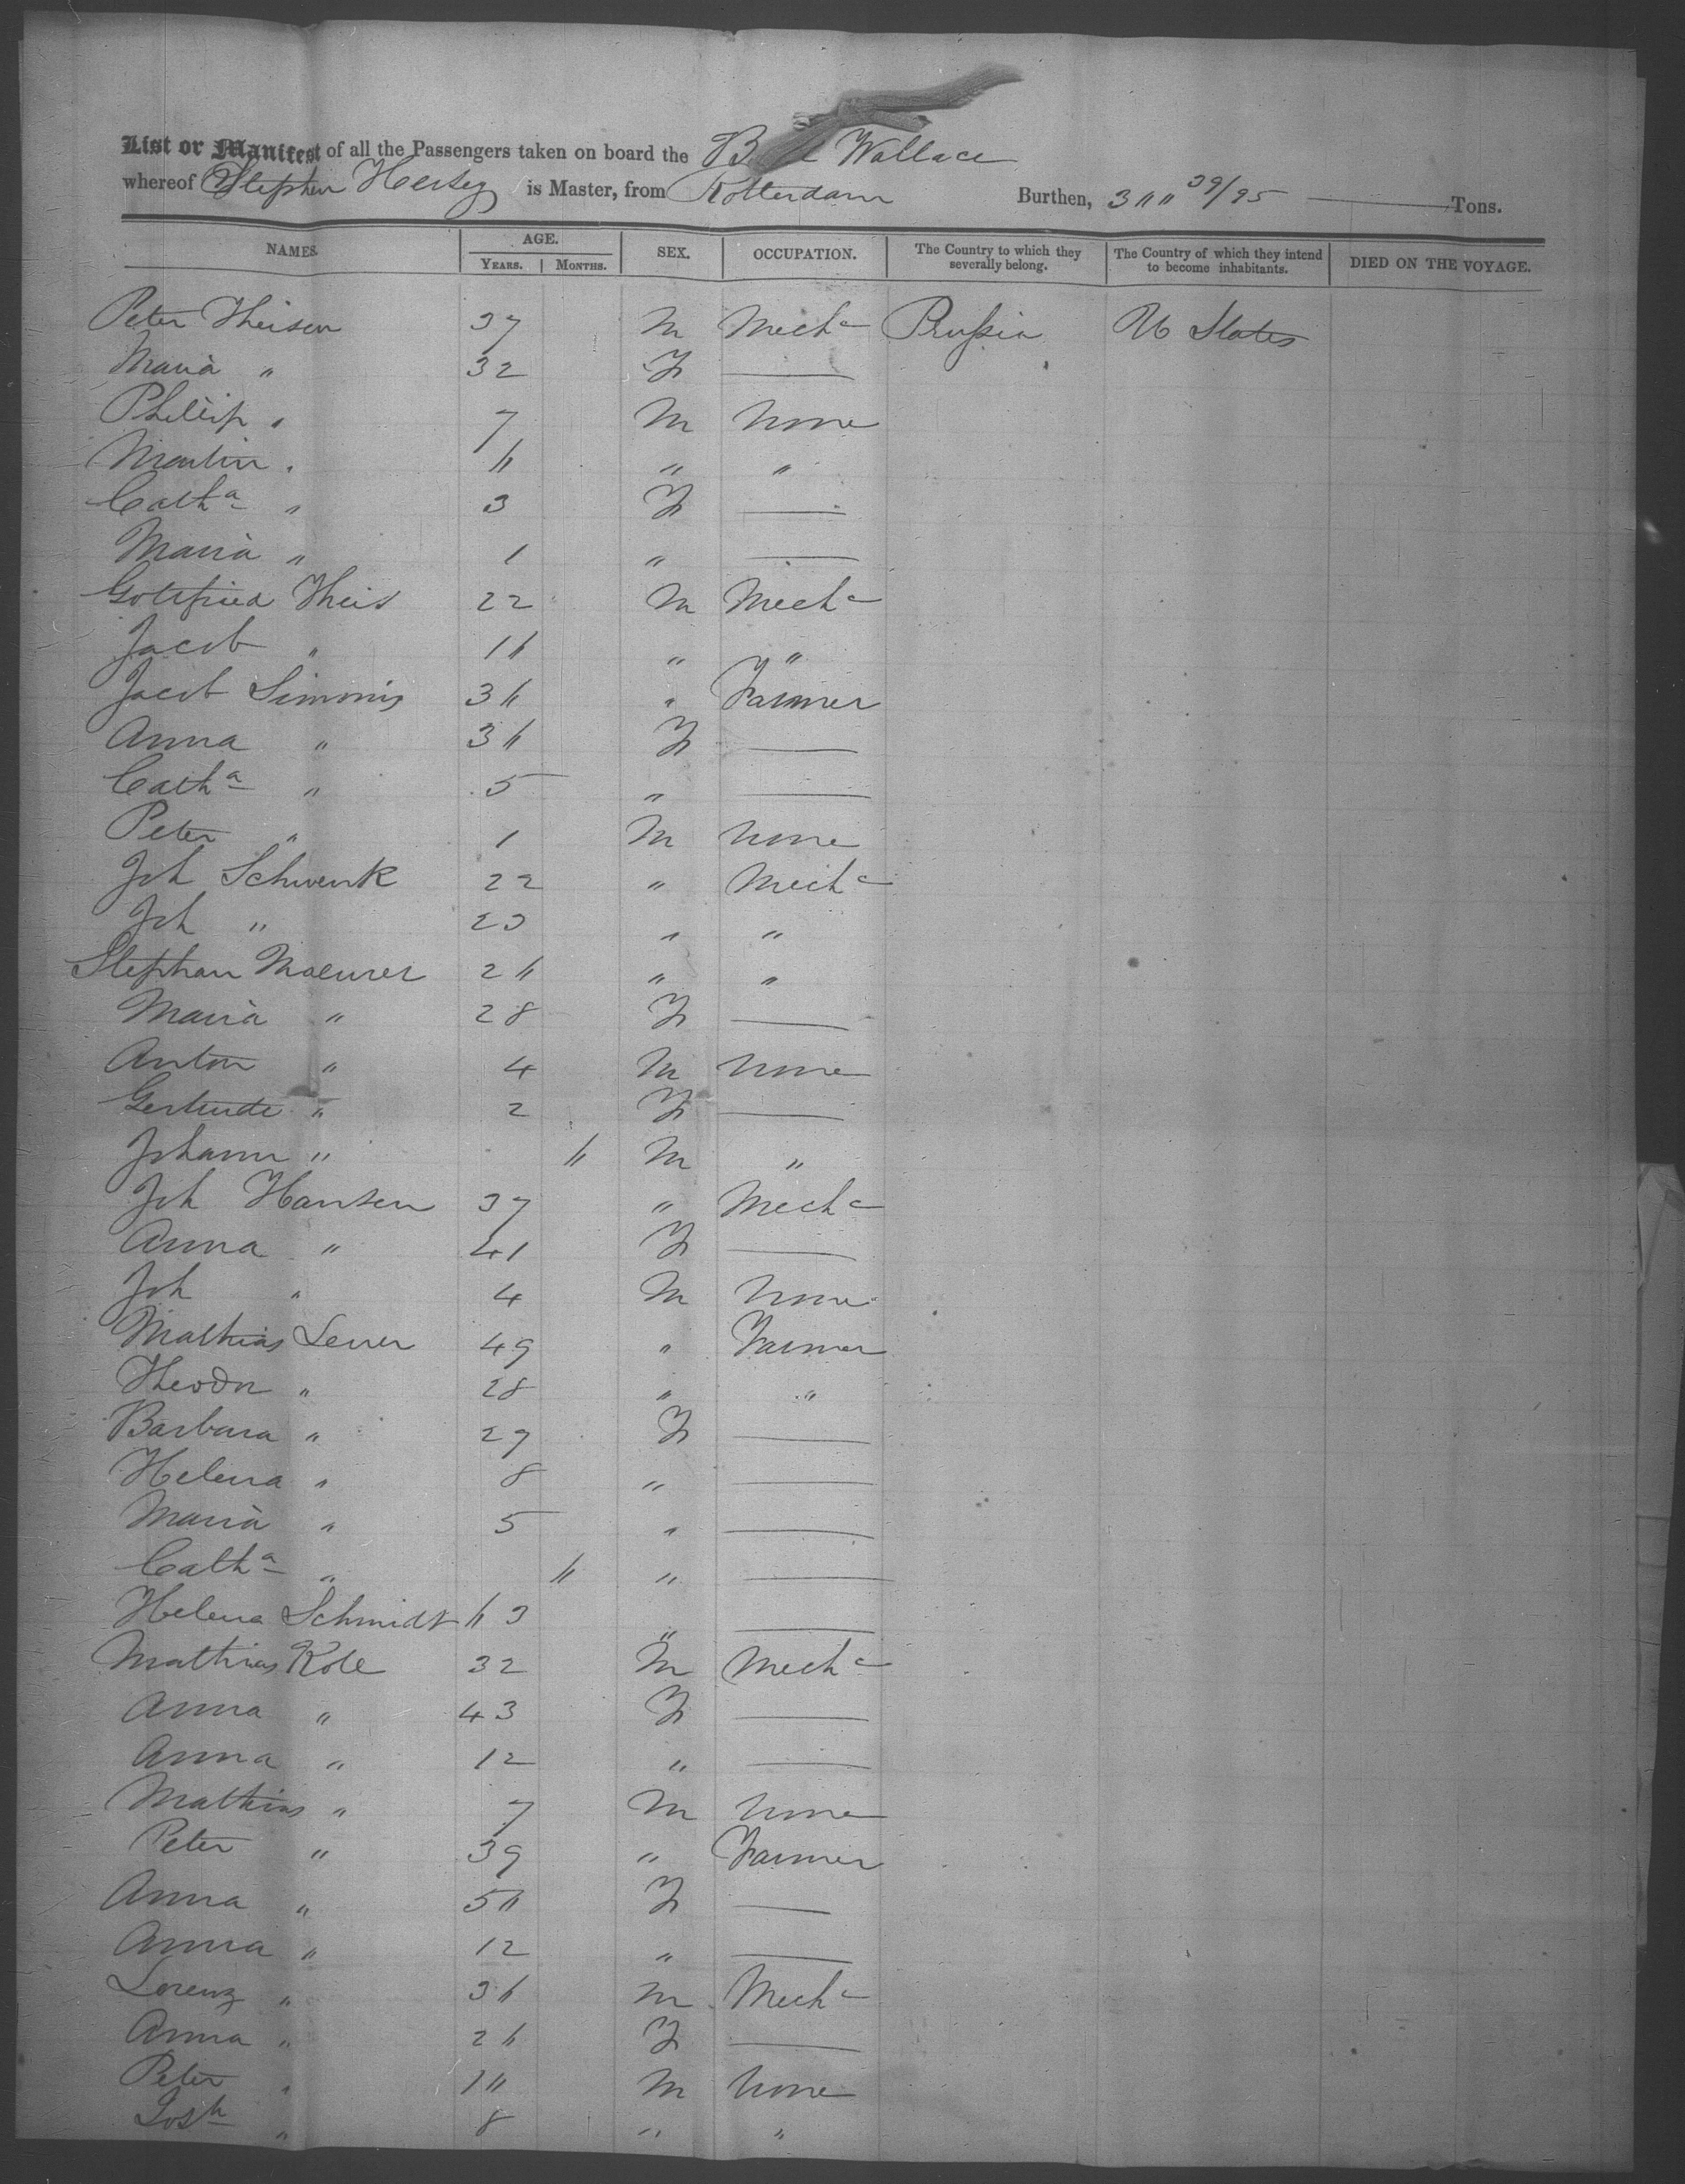 List or Manifest of all the Passengers taken on board the B Wallace
whereof Stephen Hersey is Master, from Rotterdam Burthen, 300 39/95 Tons.
NAMES. AGE. YEARS. MONTHS. SEX. OCCUPATION. The Country to which they severally belong. The Country of which they intend to become inhabitants. DIED ON THE VOYAGE.
Peter Theisen 37 M Mechc Prussia U States
Maria " 32 F —
Phillip " 7 M None
Martin " 6 " "
Catha " 3 F —
Maria " 1 " —
Gottfried Theis 22 M Mechc
Jacob " 16 " "
Jacob Simmonis 36 " Farmer
Anna " 36 F —
Catha " 5 " —
Peter " 1 M None
Joh Schwenk 22 " Mechc
Joh " 23 " "
Stephan Maeurer 26 " "
Maria " 28 F —
Anton " 4 M None
Gertrude " 2 F —
Johann " 6 M "
Joh Hansen 37 " Mechc
Anna " 41 F —
Joh " 4 M None
Mathias Lerer 49 " Farmer
Theodr " 28 " "
Barbara " 27 F —
Helena " 8 " —
Maria " 5 " —
Catha " 6 " —
Helena Schmidt 63 " —
Mathias Kole 32 M Mechc
Anna " 43 F —
Anna " 12 " —
Mathias " 7 M None
Peter " 39 " Farmer
Anna " 50 F —
Anna " 12 " —
Lorenz " 36 M Mechc
Anna " 26 F —
Peter " 10 M None
Josh " 8 " "